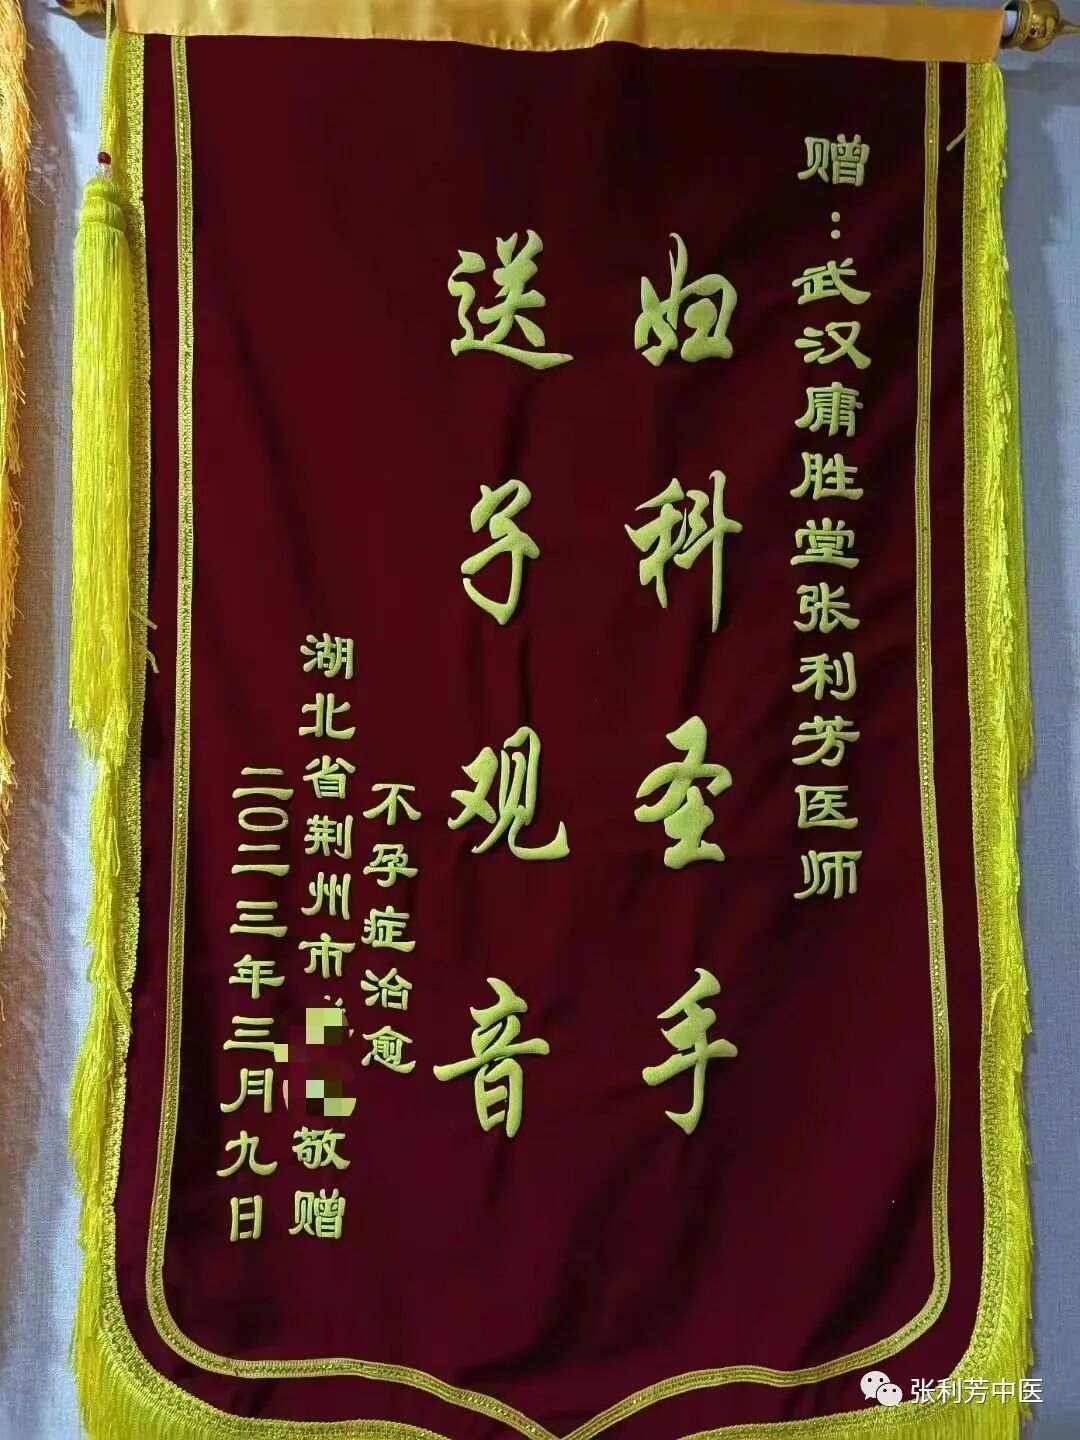 赠：武汉庸胜堂张利芳医师
妇科圣手
送子观音
不孕症治愈
湖北省荆州市
敬赠
二〇二三年三月九日
张利芳中医